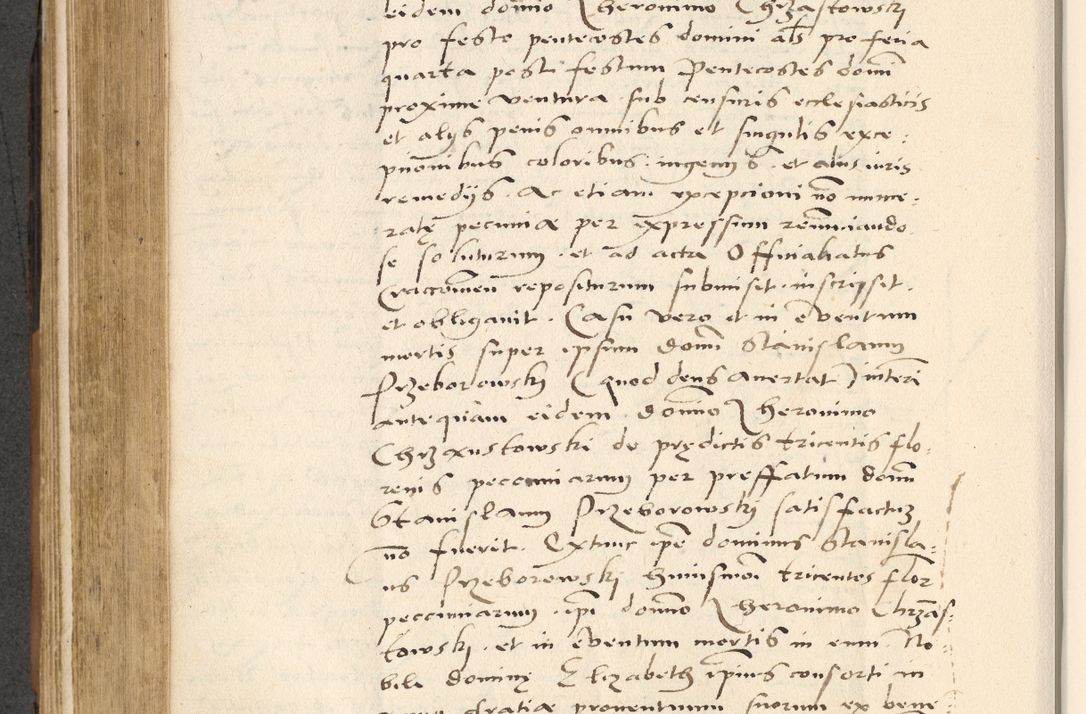 eidem domino Iheronimo Chrząstowski
pro festo pentecostes domini als pro feria
quarta post festum Pentecostes domi
proxime ventura sub censuris ecclesiasticis
et alijs penis omnibus et singulis exce:
ptionibus coloribus ingenijs et alius iuris
remedijs. Ac etiam excepcioni no nume:
ratę pecuniæ per expressum renunciando
se soluturum et ad acta Officialatus
Craccouien repositurum submisit inscripsit.
et obligauit. Casu vero et in euentum
mortis super ipsum domi Stanislaum
Przeborowski (quod deus auertat) interi
antequam eidem domino Iheronimo
Chrzanstowski de prędictis tricentis flo:
renis peccuniarum per preffatum domi
Stanislaum Przeborowski satisfactum
no fuerit. Extunc ipe dominus Stanisla:
us Przeborowski huiusmoi tricentos flor
peccuniarum ipi domino Iheronimo Chrzas:
towski et in euentum mortis in eum No:
bili dominę Elizabeth ipius consorti in
gratiæ prouentuum suorum ex bene: